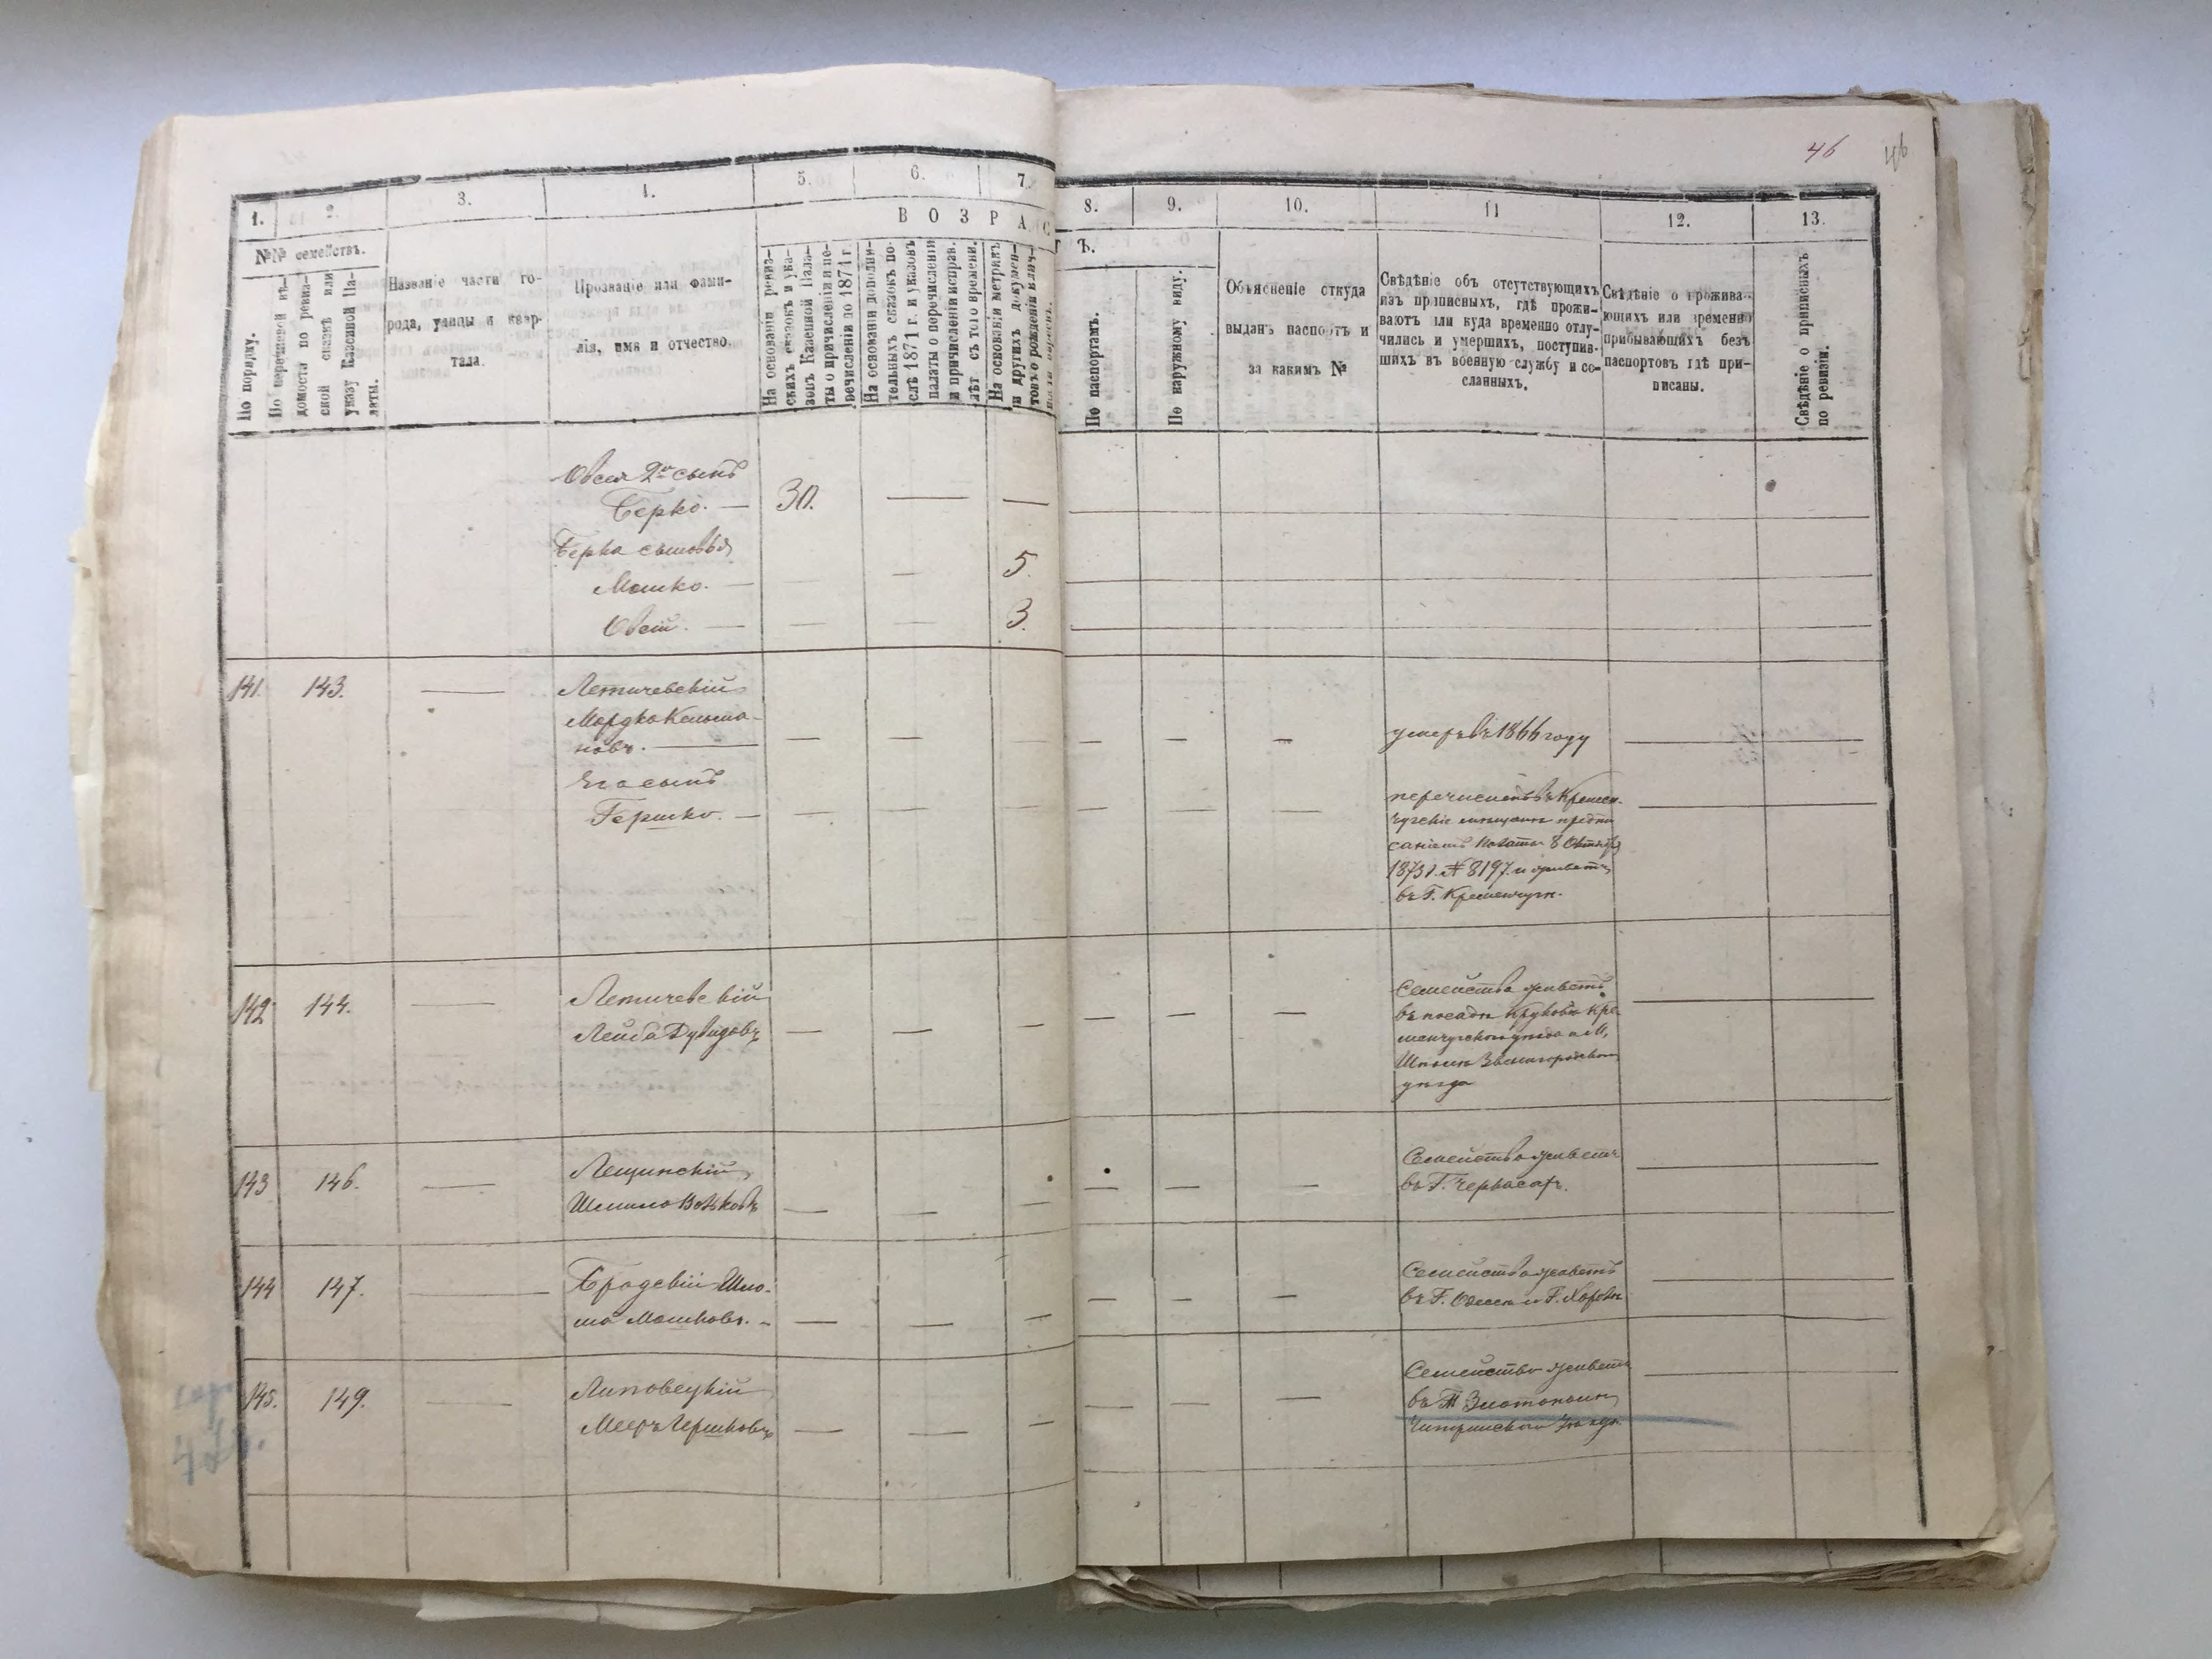 46 46
1. 2. 3. 4. 5. 6. 7. 8. 9. 10. 11 12. 13.
№№ семействъ.
В О З Р А С Т Ъ.
По порядку.
По перечневой вѣ-
домости по ревиз-
ской сказкѣ или
указу Казенной Па-
латы.
Названіе части го-
рода, улицы и квар-
тала.
Прозваніе или фами-
лія, имя и отчество.
На основаніи ревиз-
скихъ сказокъ и ука-
зовъ Казенной Пала-
ты о причисленіи и пе-
речисленіи до 1871 г.
На основаніи дополни-
тельныхъ сказокъ по-
слѣ 1871 г. и указовъ
палаты о перечисленіи
и причисленіи исправ.
лѣт съ того времени.
На основаніи метрикъ
и другихъ докумен-
товъ о рожденіи
По паспортамъ.
По наружному виду.
Объясненіе откуда
выданъ паспортъ и
за какимъ №
Свѣдѣніе объ отсутствующихъ
изъ приписныхъ, гдѣ прожи-
ваютъ или куда временно отлу-
чились и умершихъ, поступив-
шихъ въ военную службу и со-
сланныхъ.
Свѣдѣніе о прожива-
ющихъ или временно
прибывающихъ безъ
паспортовъ гдѣ при-
писаны.
Свѣдѣніе о приписныхъ
по ревизіи.
Овсея 2й сынъ
Берко. — 30. — —
Берка сыновья
Мошко. — — — 5.
Овсій. — — 3.
141. 143. — Летичевскій
Мордко Кельма-
новъ. — — — — — — умеръ въ 1866 году —
Его сынъ
Гершко. — — — — — — —
перечисленъ въ Кремен-
чугскіе мещане предпи
саніемъ Палаты 8 Октября
1875 г. № 8197 и живетъ
въ Г. Кременчугѣ.
142. 144. — Летичевскій
Лейба Дувидовъ — — — — — —
Семейство живетъ —
въ посадѣ Крюковѣ Кре
менчугскаго уѣзда и М.
Шполѣ Звенигородскаго
уѣзда
143 146. — Лещинскій
Шмило Волковъ — — — — — —
Семейство живетъ —
въ Г. Черкасахъ.
144 147. — Бродскій Шло-
ма Мошковъ. — — — — — — —
Семейство живетъ —
въ Г. Одессѣ и Г.
145. 149. — Липовецкій
Мееръ Гершковъ — — — — — —
Семейство живетъ —
въ М Златополѣ
Чигиринскаго Уѣзда.